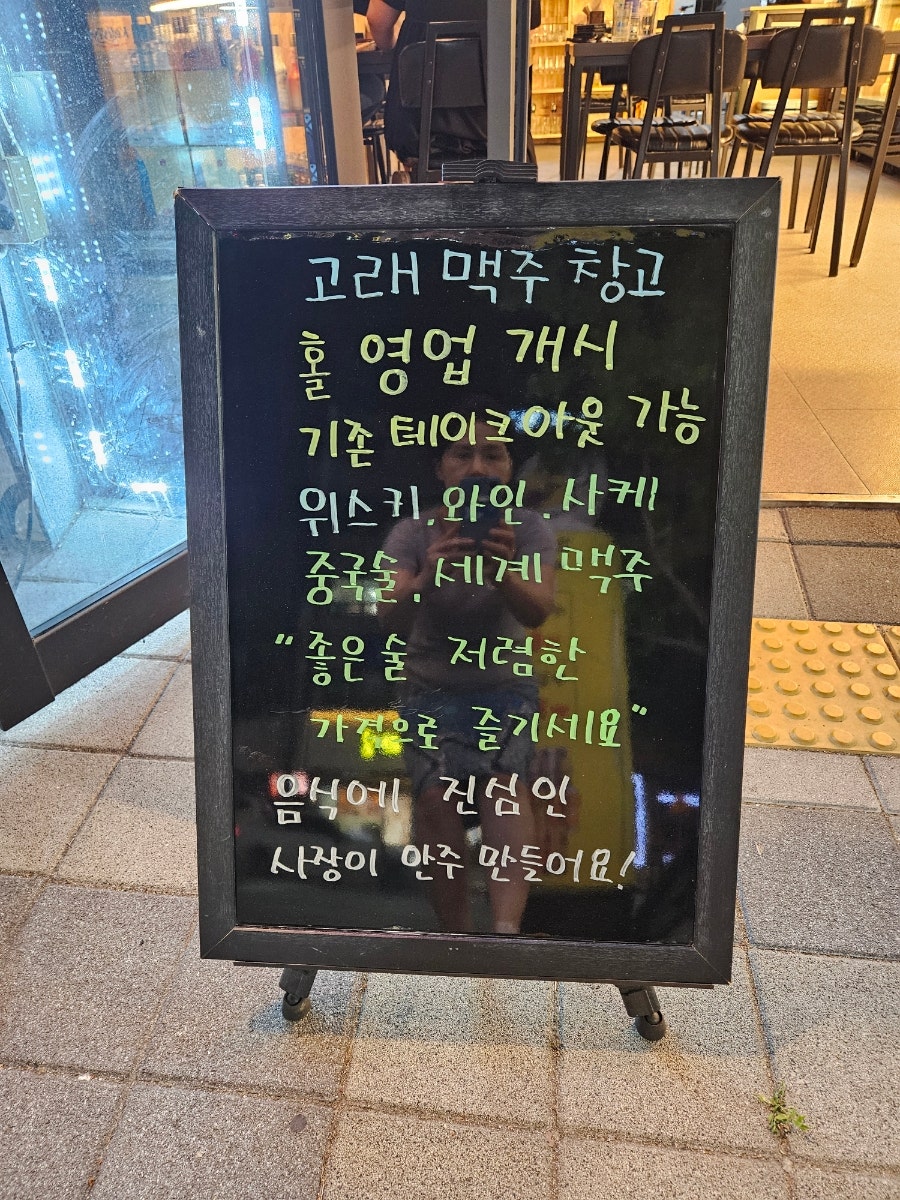 고래 맥주 창고
홀 영업 개시
기존 테이크아웃 가능
위스키.와인.사케
중국술.세계 맥주
"좋은 술 저렴한
가격으로 즐기세요"
음식에 진심인
사장이 안주 만들어요!